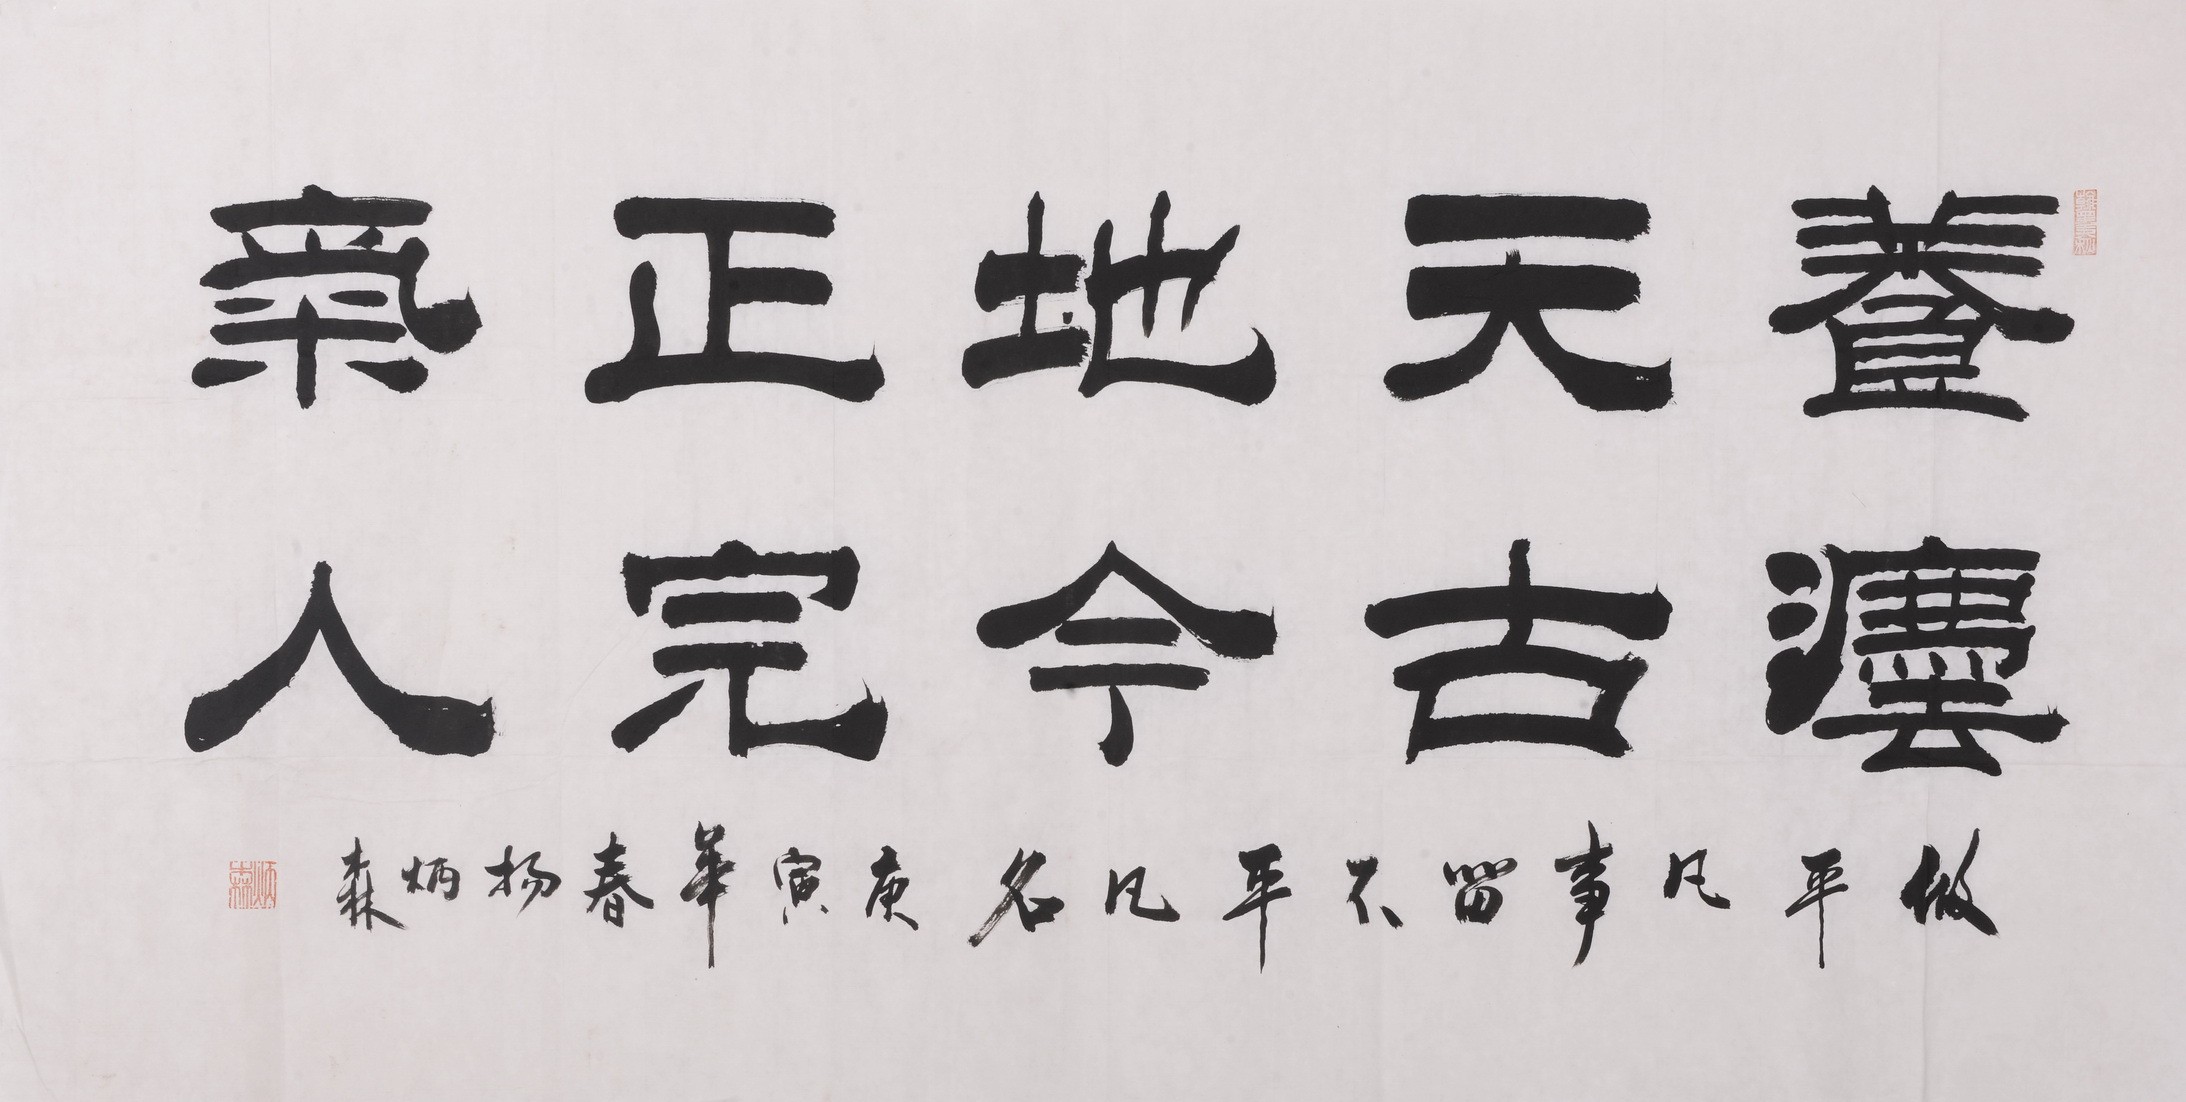 養天地正氣
灋古今完人
做平凡事留不平凡名庚寅年春揚炳森